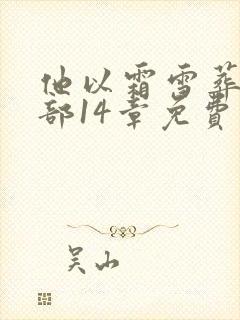 他以霜雪葬
部14章免費
吴山